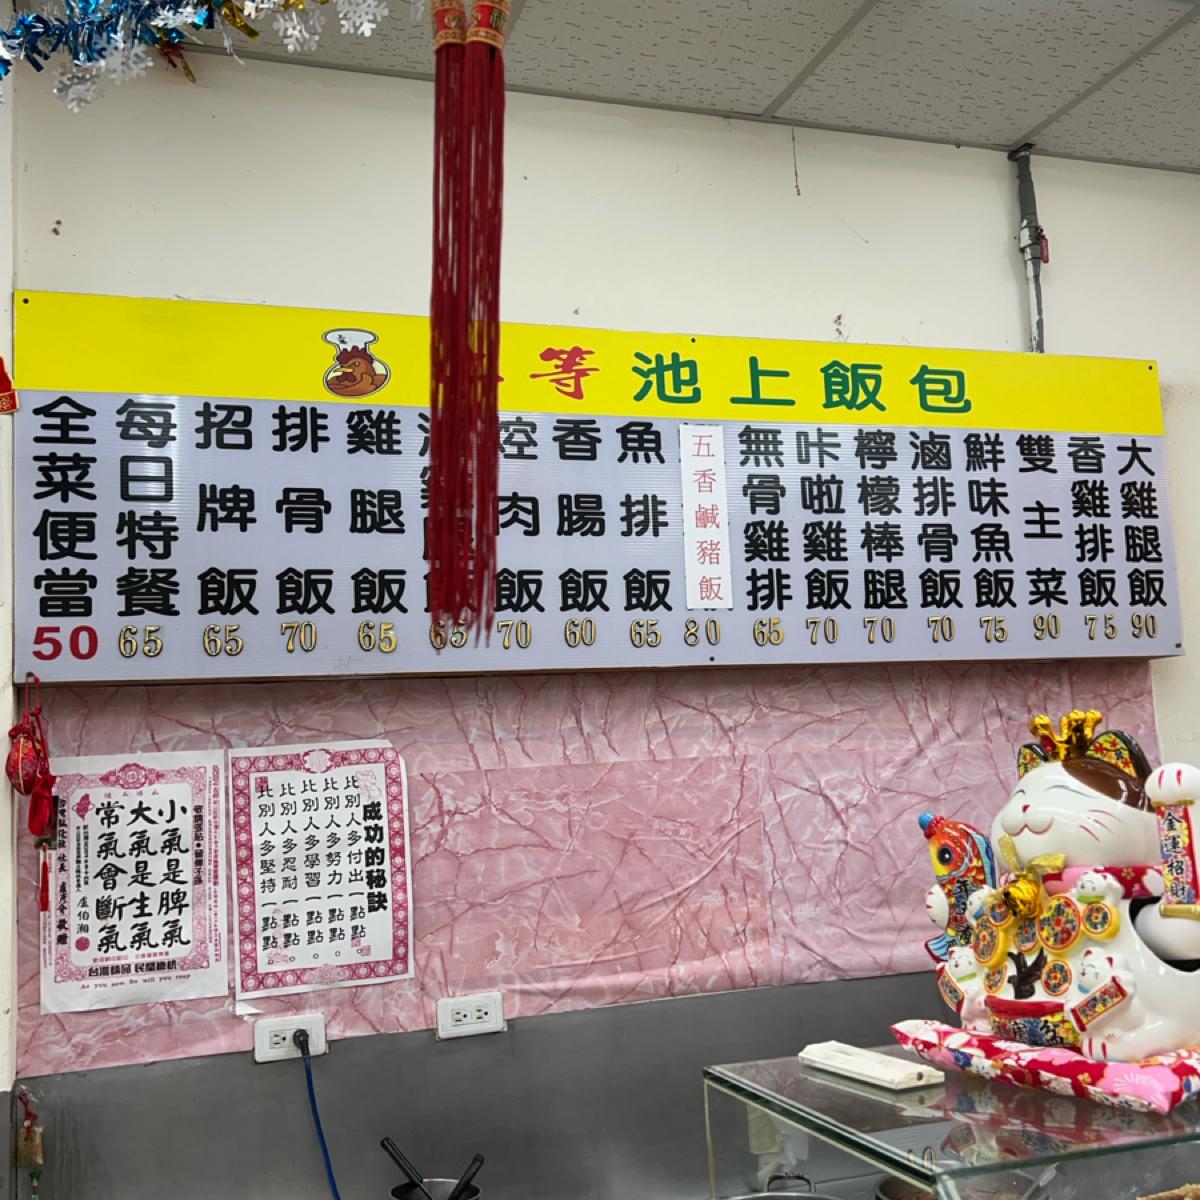 等池上飯包
全菜便當
50
每日特餐
65
招牌飯
65
排骨飯
70
雞腿飯
65
65
控肉飯
70
香腸飯
60
魚排飯
65
五香鹹豬飯
80
無骨雞排
65
咔啦雞飯
70
檸檬棒腿
70
滷排骨飯
70
鮮味魚飯
75
雙主菜
90
香雞排飯
75
大雞腿飯
90
敬請張貼●留傳不誤
小氣是脾氣
大氣是生氣
常氣會斷氣
盧伯湘
台灣精品 民間總統
As you sow. So will you reap
成功的秘訣
比別人多付出一點點。
比別人多努力一點點。
比別人多學習一點點。
比別人多忍耐一點點。
比別人多堅持一點點。
金運招財